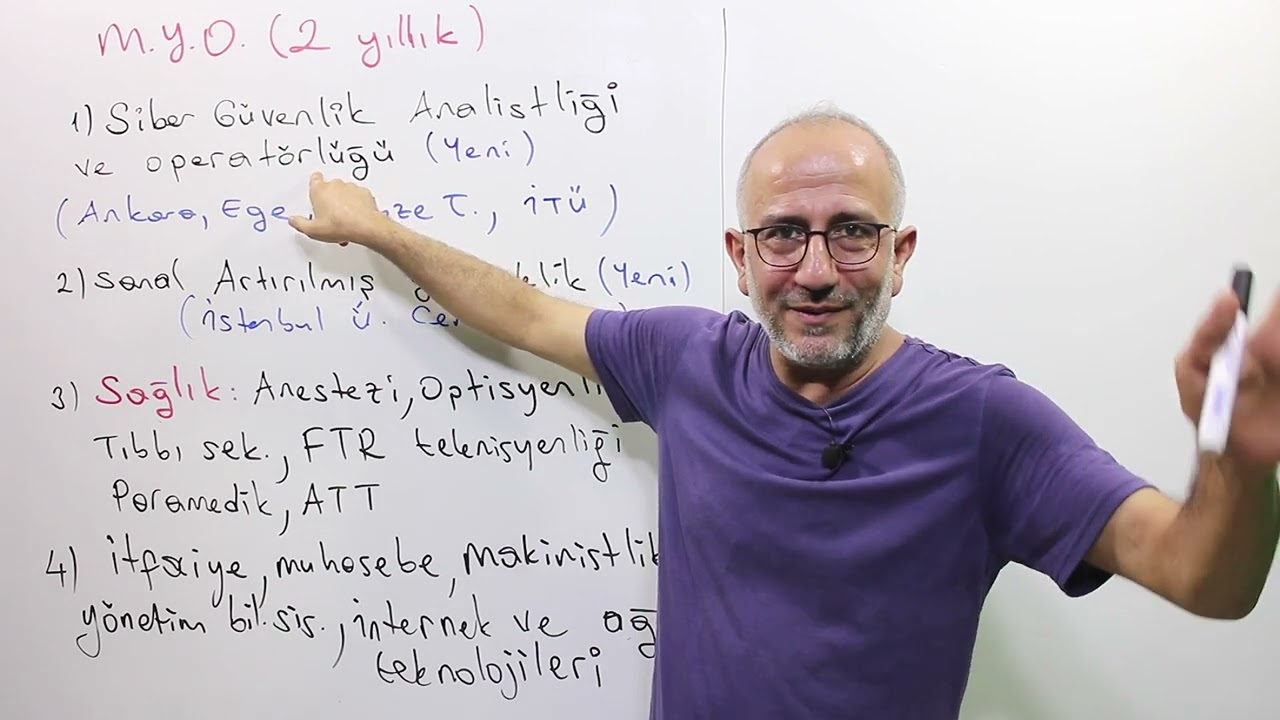 M.Y.O. (2 yıllık)
1) Siber Güvenlik Analistliği
ve operatörlüğü (Yeni)
(Ankara, Ege, T., İTÜ)
2) Sanal Artırılmış (Yeni)
(İstanbul Ü.
3) Sağlık: Anestezi, Optisyenli
Tıbbı sek., FTR teknisyenliği
Paramedik, ATT
4) itfaiye, muhasebe, Makinistlik
yönetim bil. sis., internek ve ağ
teknolojileri